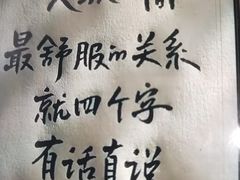 最舒服的关系
就四个字
有话直说